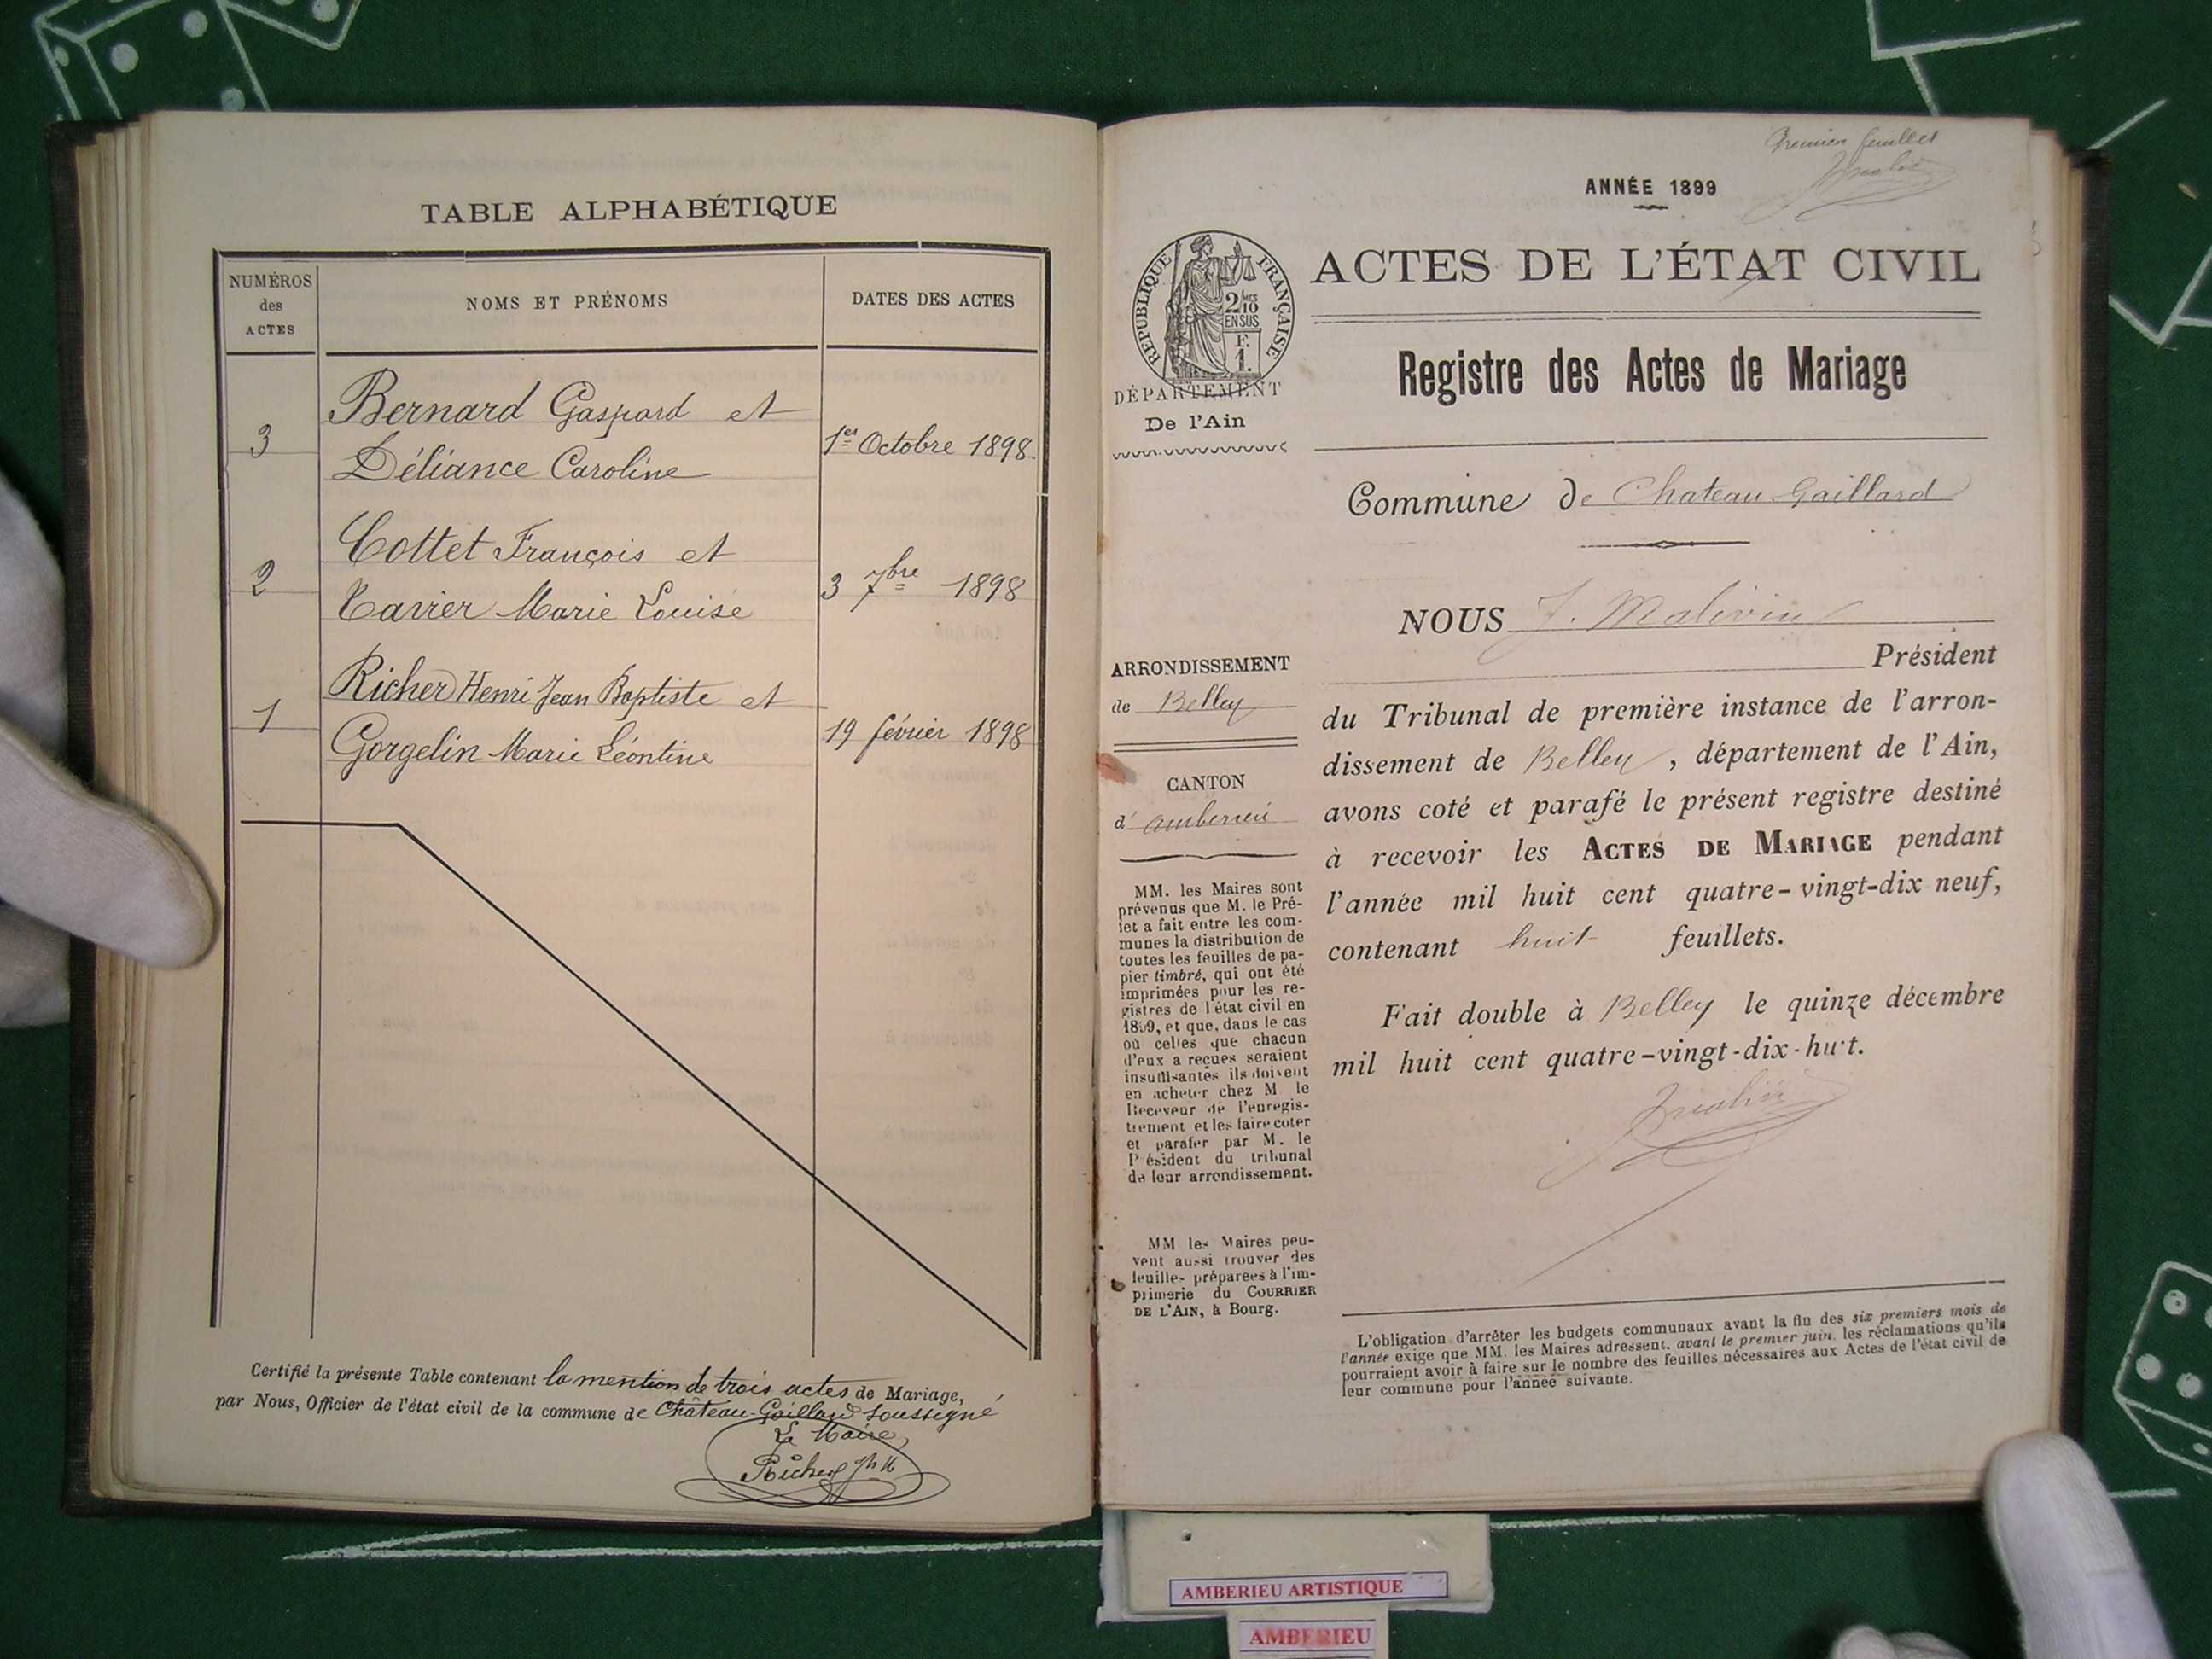 TABLE ALPHABÉTIQUE
NUMÉROS
des
ACTES
NOMS ET PRÉNOMS
DATES DES ACTES
3
Bernard Gaspard et
Déliance Caroline
1er Octobre 1898
2
Cottet François et
Tavier Marie Louise
3 7bre 1898
1
Richer Henri Jean Baptiste et
Gorgelin Marie Léontine
19 février 1898
Certifié la présente Table contenant la mention de trois actes de Mariage,
par Nous, Officier de l'état civil de la commune de Château-Gaillard soussigné
Le Maire
Richer
Premier feuillet
ANNÉE 1899
RÉPUBLIQUE FRANÇAISE
2/10
EN SUS
F.
1.
ACTES DE L'ÉTAT CIVIL
DÉPARTEMENT
De l'Ain
Registre des Actes de Mariage
Commune de Chateau-Gaillard
NOUS J. Malivin
Président
ARRONDISSEMENT
de Belley
CANTON
d' amberieu
du Tribunal de première instance de l'arron-
dissement de Belley, département de l'Ain,
avons coté et parafé le présent registre destiné
à recevoir les ACTES DE MARIAGE pendant
l'année mil huit cent quatre-vingt-dix neuf,
contenant huit feuillets.
Fait double à Belley le quinze décembre
mil huit cent quatre-vingt-dix-huit.
MM. les Maires sont
prévenus que M. le Pré-
fet a fait entre les com-
munes la distribution de
toutes les feuilles de pa-
pier timbré, qui ont été
imprimées pour les re-
gistres de l'état civil en
1899, et que, dans le cas
où celles que chacun
d'eux a reçues seraient
insuffisantes ils doivent
en acheter chez M le
Receveur de l'enregis-
trement et les faire coter
et parafer par M. le
Président du tribunal
de leur arrondissement.
MM les Maires peu-
vent aussi trouver des
feuilles préparées à l'im-
primerie du COURRIER
DE L'AIN, à Bourg.
L'obligation d'arrêter les budgets communaux avant la fin des six premiers mois de
l'année exige que MM. les Maires adressent, avant le premier juin, les réclamations qu'ils
pourraient avoir à faire sur le nombre des feuilles nécessaires aux Actes de l'état civil de
leur commune pour l'année suivante.
AMBERIEU ARTISTIQUE
AMBERIEU